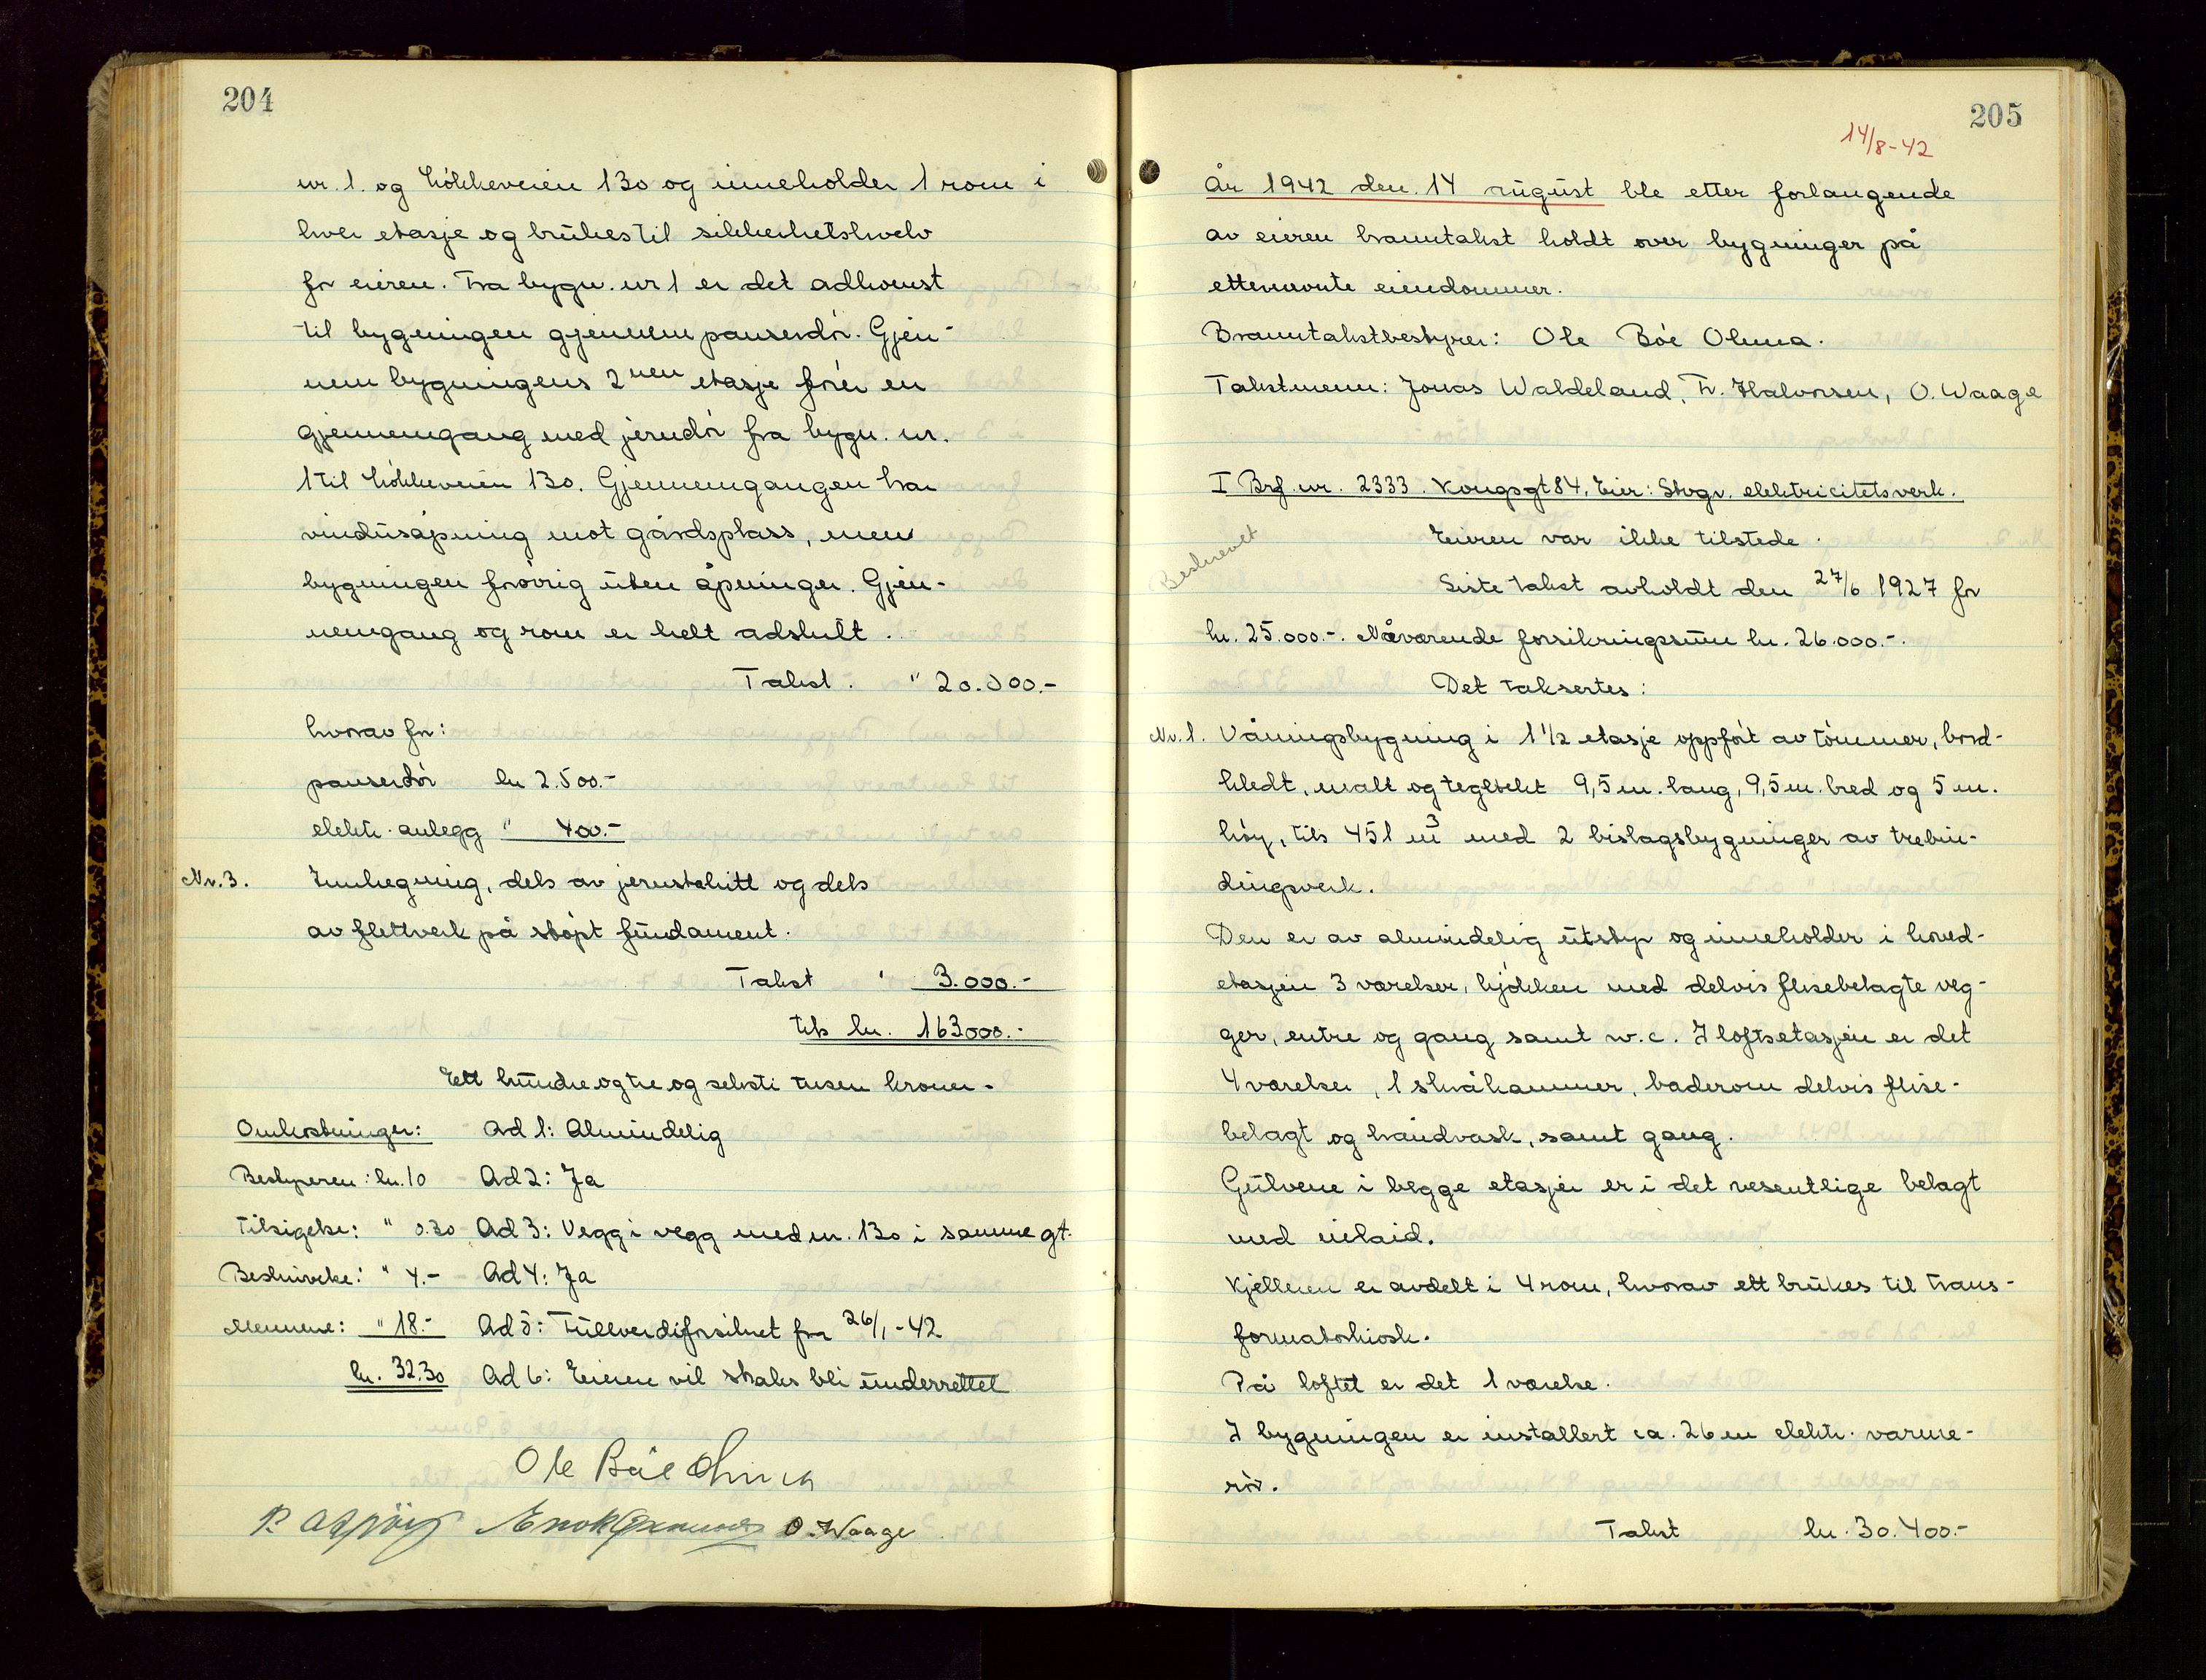 204
nr. 1. og Løkkeveien 130 og inneholder 1 rom i
hver etasje og brukes til sikkerhetshvelv
for eieren. Fra bygn. nr 1 er det adkomst
til bygningen gjennem panserdør. Gjen-
nem bygningens 2nen etasje fører en
gjennemgang med jerndør fra bygn. nr.
1 til Løkkeveien 130. Gjennemgangen har
vindusåpning mot gårdsplass, men
bygningen forøvrig uten åpninger. Gjen-
nemgang og rom er helt adskilt.
Takst. " 20.000.-
hvorav for:
panserdør kr 2.500.-
elektr. anlegg " 400.-
Nr. 3. Innhegning, dels av jernstakitt og dels
av flettverk på støpt fundament.
Takst " 3.000.-
tils kr. 163000.-
Ett hundre og tre og seksti tusen kroner.
Omkostninger: Ad 1: Almindelig
Bestyreren: kr. 10 - Ad 2: Ja
Tilsigelse: " 0.30 Ad 3: Vegg i vegg med nr. 130 i samme gt.
Beskrivelse: " 4.- Ad 4: Ja
Mennene: " 18.- Ad 5: Fullverdiforsikret fra 26/1 - 42
kr. 32.30 Ad 6: Eieren vil straks bli underrettet
Ole Bøe Olsnna
O. Waage
205
14/8-42
År 1942 den. 14 august ble etter forlangende
av eieren branntakst holdt over bygninger på
etternevnte eiendommer.
Branntakstbestyrer: Ole Bøe Olsnna.
Takstmenn: Jonas Waldeland, Fr. Halvorsen, O. Waage
I Brf. nr. 2333. Kongsgt 84. Eier: Stvgr. elektricitetsverk.
Beskrevet
Eieren var ikke tilstede.
Siste takst avholdt den 27/6 1927 for
kr. 25.000.-. Nåværende forsikringssum kr. 26.000.-.
Det taksertes:
Nr. 1. Våningsbygning i 1 1/2 etasje oppført av tømmer, bord-
kledt, malt og tegltekt 9,5 m. lang, 9,5 m. bred og 5 m.
høy, tils 451 m3 med 2 bislagsbygninger av trebin-
dingsverk.
Den er av almindelig utstyr og inneholder i hoved-
etasjen 3 værelser, kjøkken med delvis flisebelagte veg-
ger, entre og gang samt w.c. I loftsetasjen er det
4 værelser, 1 skråkammer, baderom delvis flise-
belagt og håndvask, samt gang.
Gulvene i begge etasjer er i det vesentlige belagt
med inlaid.
Kjelleren er avdelt i 4 rom, hvorav ett brukes til trans-
formatorkiosk.
På loftet er det 1 værelse.
I bygningen er installert ca. 26 m elektr. varme-
rør.
Takst kr. 30.400.-